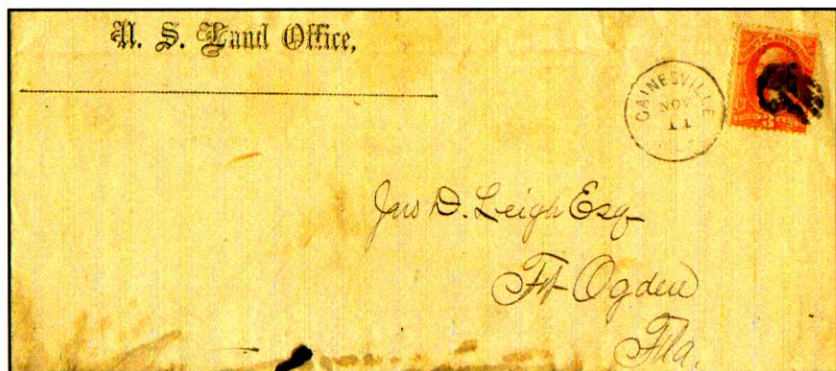 U. S. Land Office,
GAINESVILLE
NOV
11
3
Jno D. Leigh Esq
Ft Ogden
Fla.